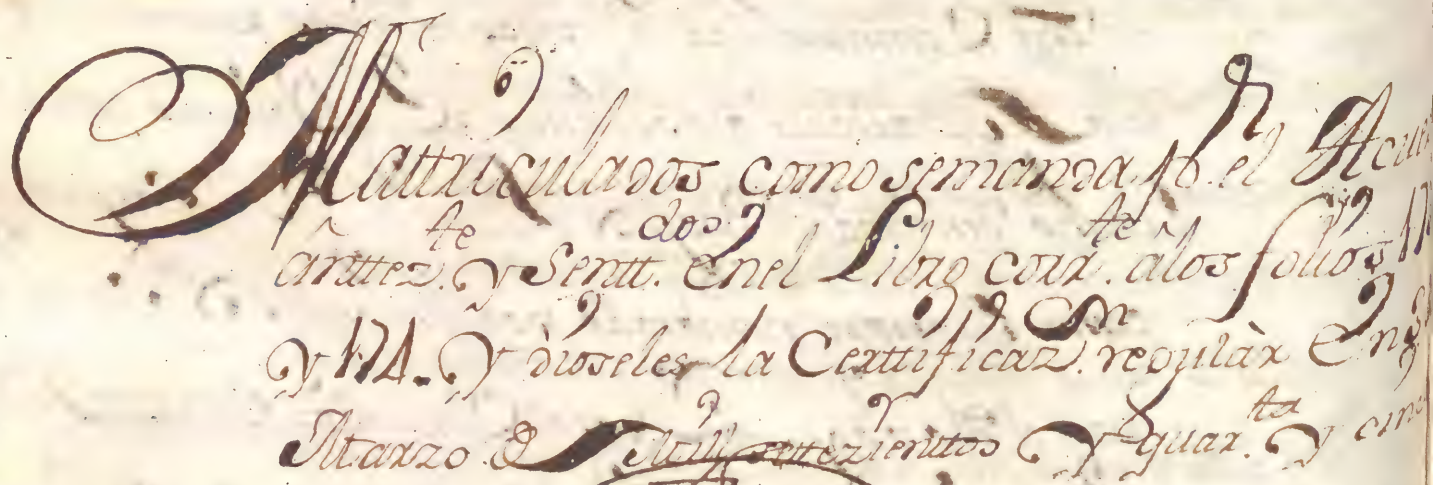 Mattriculados como semanda pr. el Acue
antteze. y Sentt.dos enel Libro corrte. alos folios 17
y 174. y dioseles la Certtificazon. regular en
Marzo de Mill settezienttos y quarta. y